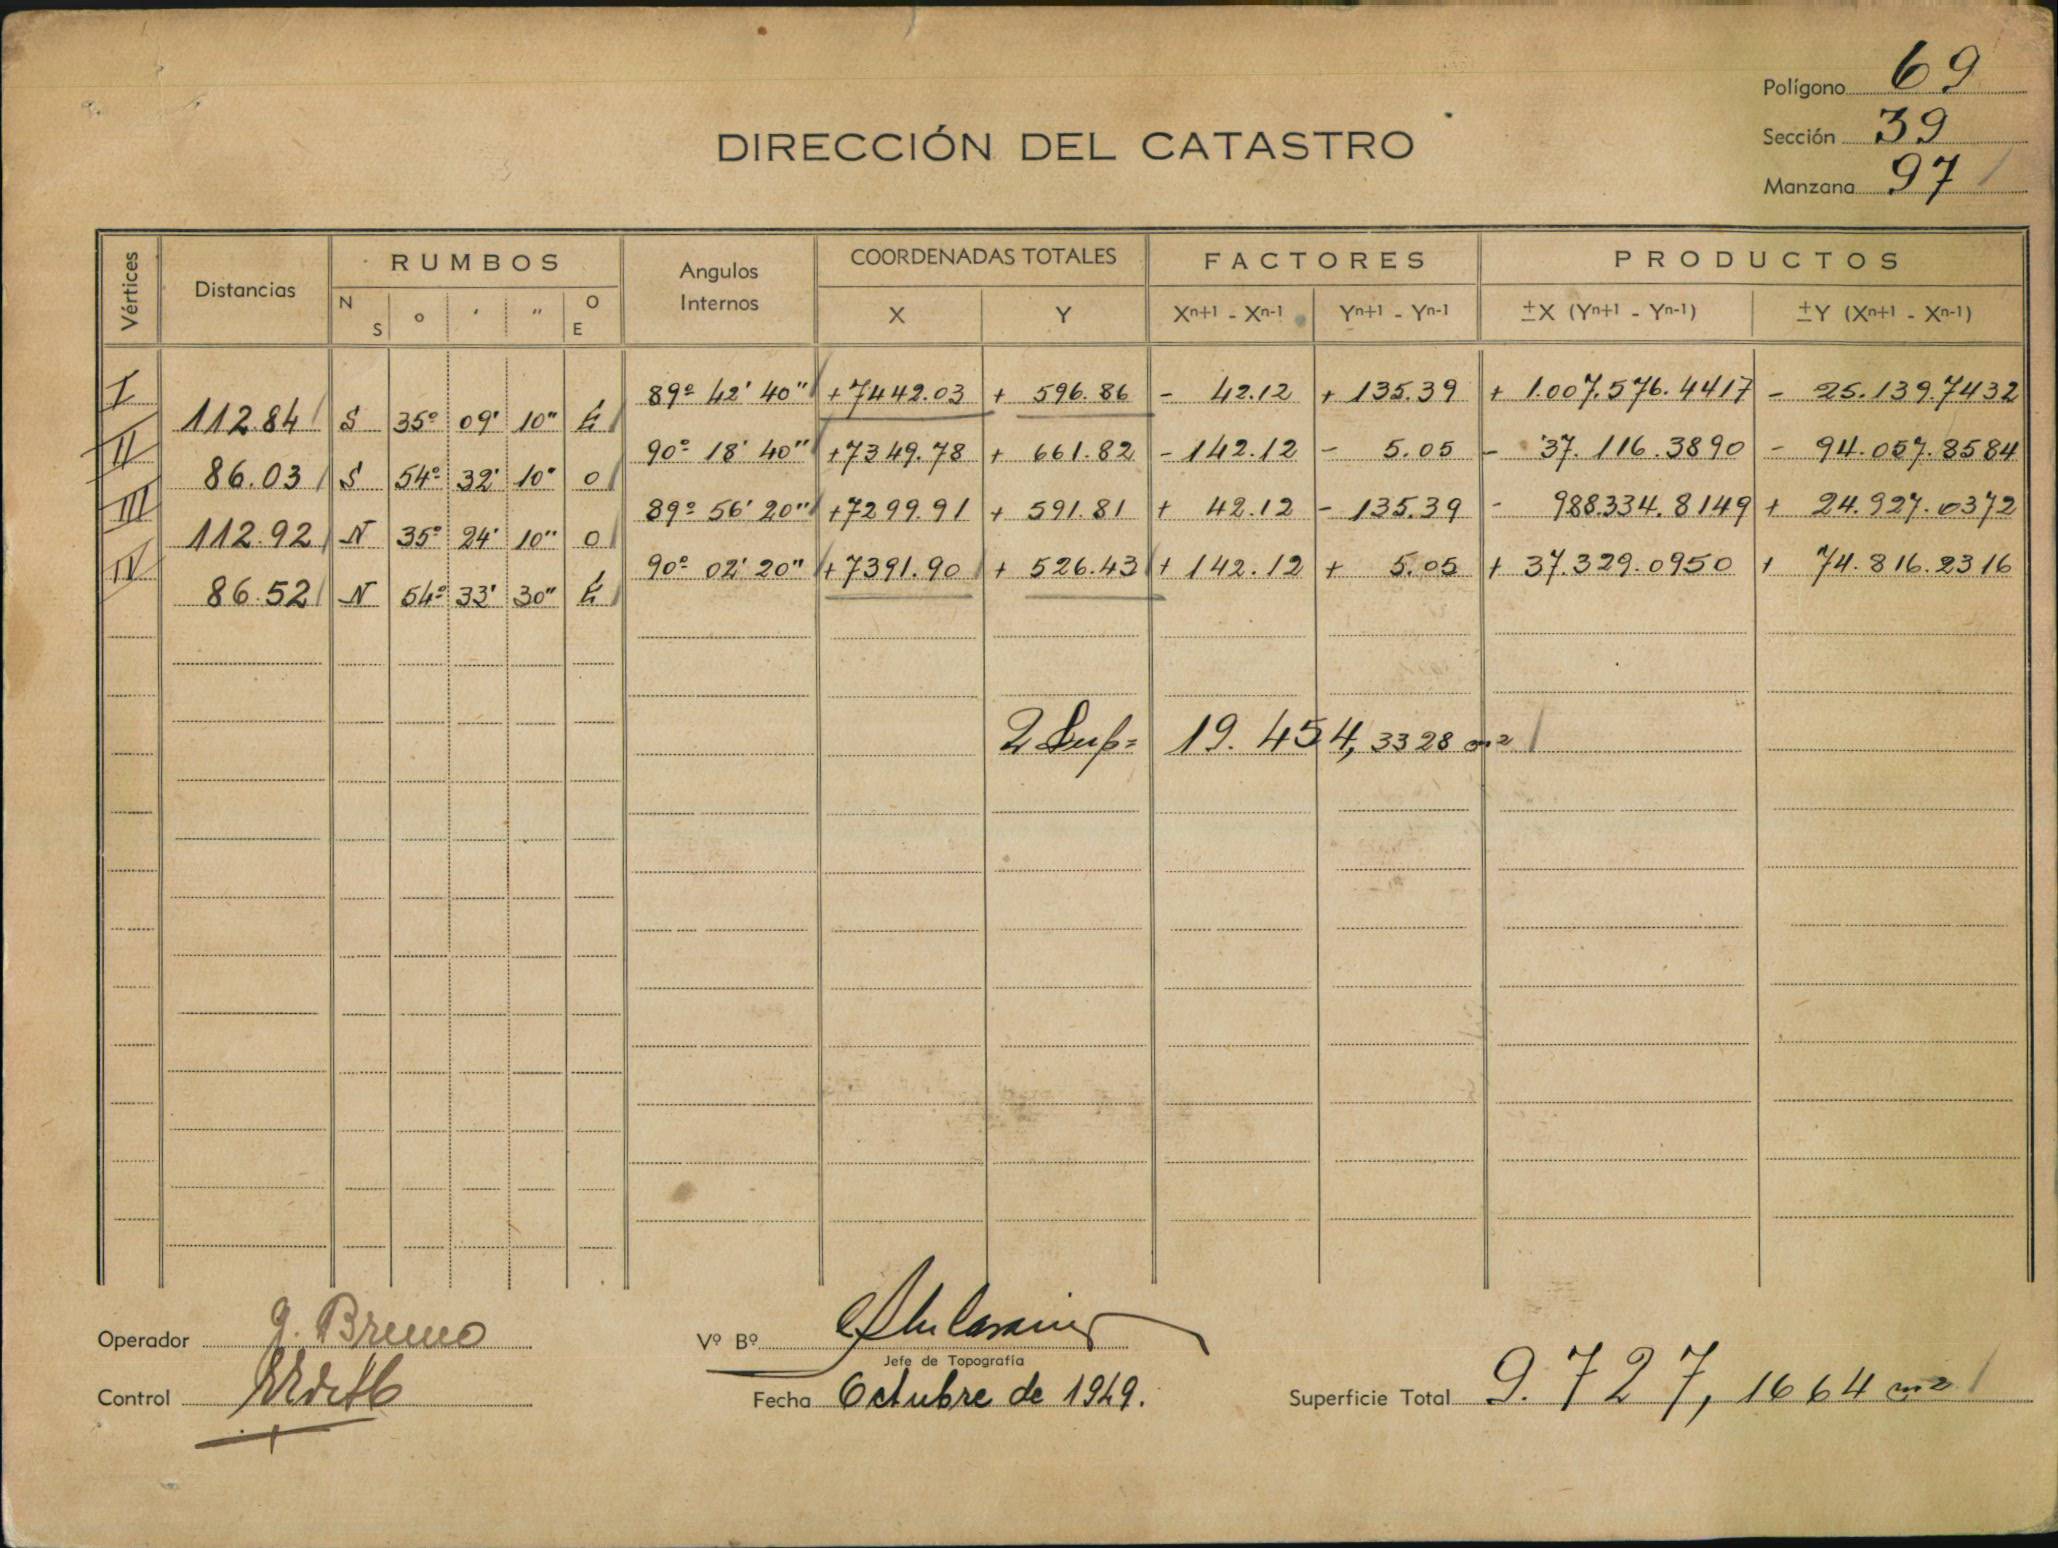 Polígono 69
Sección 39
Manzana 97
DIRECCIÓN DEL CATASTRO
Vértices Distancias RUMBOS Angulos Internos COORDENADAS TOTALES FACTORES PRODUCTOS
N S o ' " O E X Y Xn+1 - Xn-1 Yn+1 - Yn-1 ±X (Yn+1 - Yn-1) ±Y (Xn+1 - Xn-1)
I 89º 42' 40" +7442.03 + 596.86 - 42.12 + 135.39 + 1.007.576.4417 - 25.139.7432
112.84 S 35º 09' 10" E
II 90º 18' 40" +7349.78 + 661.82 - 142.12 - 5.05 - 37.116.3890 - 94.057.8584
86.03 S 54º 32' 10" O
III 89º 56' 20" +7299.91 + 591.81 + 42.12 - 135.39 - 988.334.8149 + 24.927.0372
112.92 N 35º 24' 10" O
IV 90º 02' 20" +7391.90 + 526.43 + 142.12 + 5.05 + 37.329.0950 + 74.816.2316
86.52 N 54º 33' 30" E
2 Sup= 19.454,3328 m2
Operador G. Bruno
Vº Bº
Jefe de Topografía
Control
Fecha Octubre de 1949.
Superficie Total 9.727,1664 m2